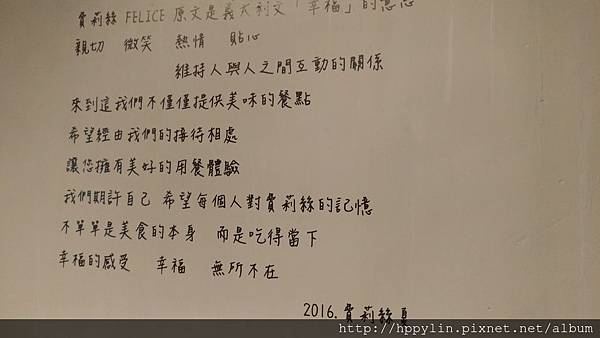 費莉絲 FELICE 原文是義大利文「幸福」的意思
親切 微笑 熱情 貼心
維持人與人之間互動的關係
來到這我們不僅僅提供美味的餐點
希望經由我們的接待相處
讓您擁有美好的用餐體驗
我們期許自己 希望每個人對費莉絲的記憶
不單單是美食的本身 而是吃得當下
幸福的感受 幸福 無所不在
2016. 費莉絲 夏
http://hppylin.pixnet.net/album